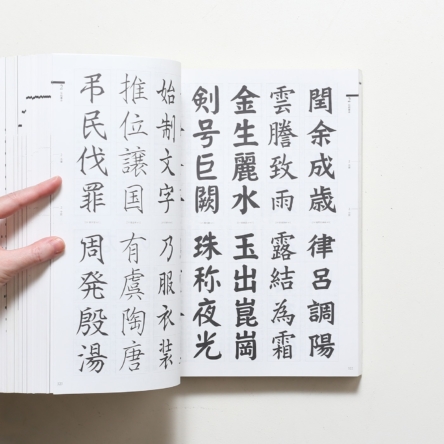 閏余成歳 律呂調陽
雲騰致雨 露結為霜
金生麗水 玉出崑崗
剣号巨闕 珠称夜光
始制文字 乃服衣装
推位譲国 有虞陶唐
弔民伐罪 周発殷湯